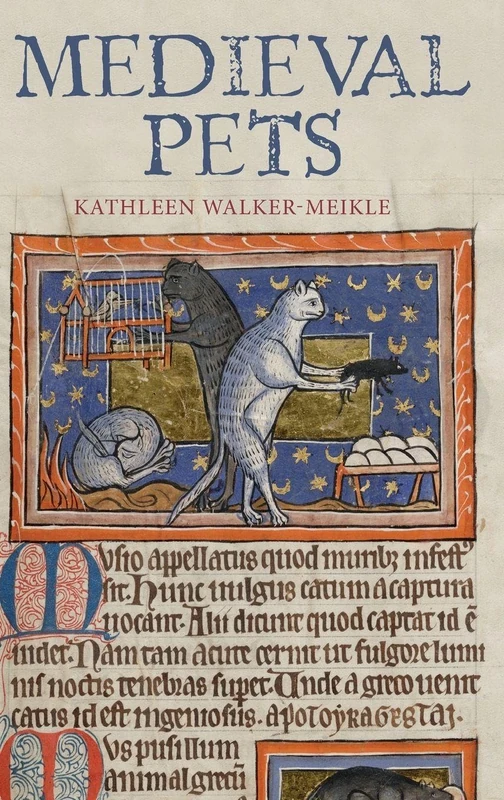 MEDIEVAL
PETS
KATHLEEN WALKER-MEIKLE
Musio appellatus quod muribꝫ infestꝰ
sit. Hunc uulgus catum a captura
uocant. Alii dicunt quod captat id ē
uidet. Nam tam acute cernit ut fulgore lumi
nis noctis tenebras supet. Unde a greco uenit
catus id est ingeniosus.
Mus pusillum
animal grecū